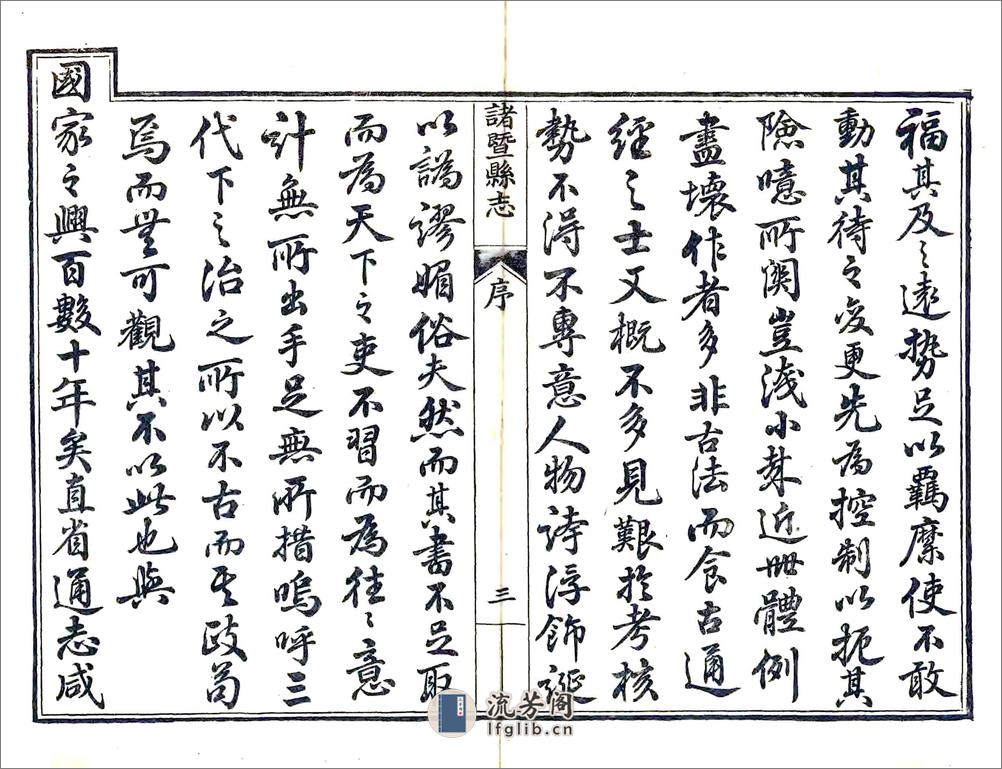 福其及之遠勢足以羈縻使不敢
動其待之変更先為控制以扼其
險噫所関豈淺小哉近世體例
盡壞作者多非古法而食古通
經之士又概不多見艱於考核
勢不得不專意人物誇浮飾誕
諸暨縣志
序
三
以譌謬媚俗夫然而其書不足取
而為天下之吏不習而為往〻意
計無所出手足無所措嗚呼三
代下之治之所以不古而其政苟
焉而無可觀其不以此也與
國家之興百數十年矣直省通志咸
流芳阁
lfglib.cn